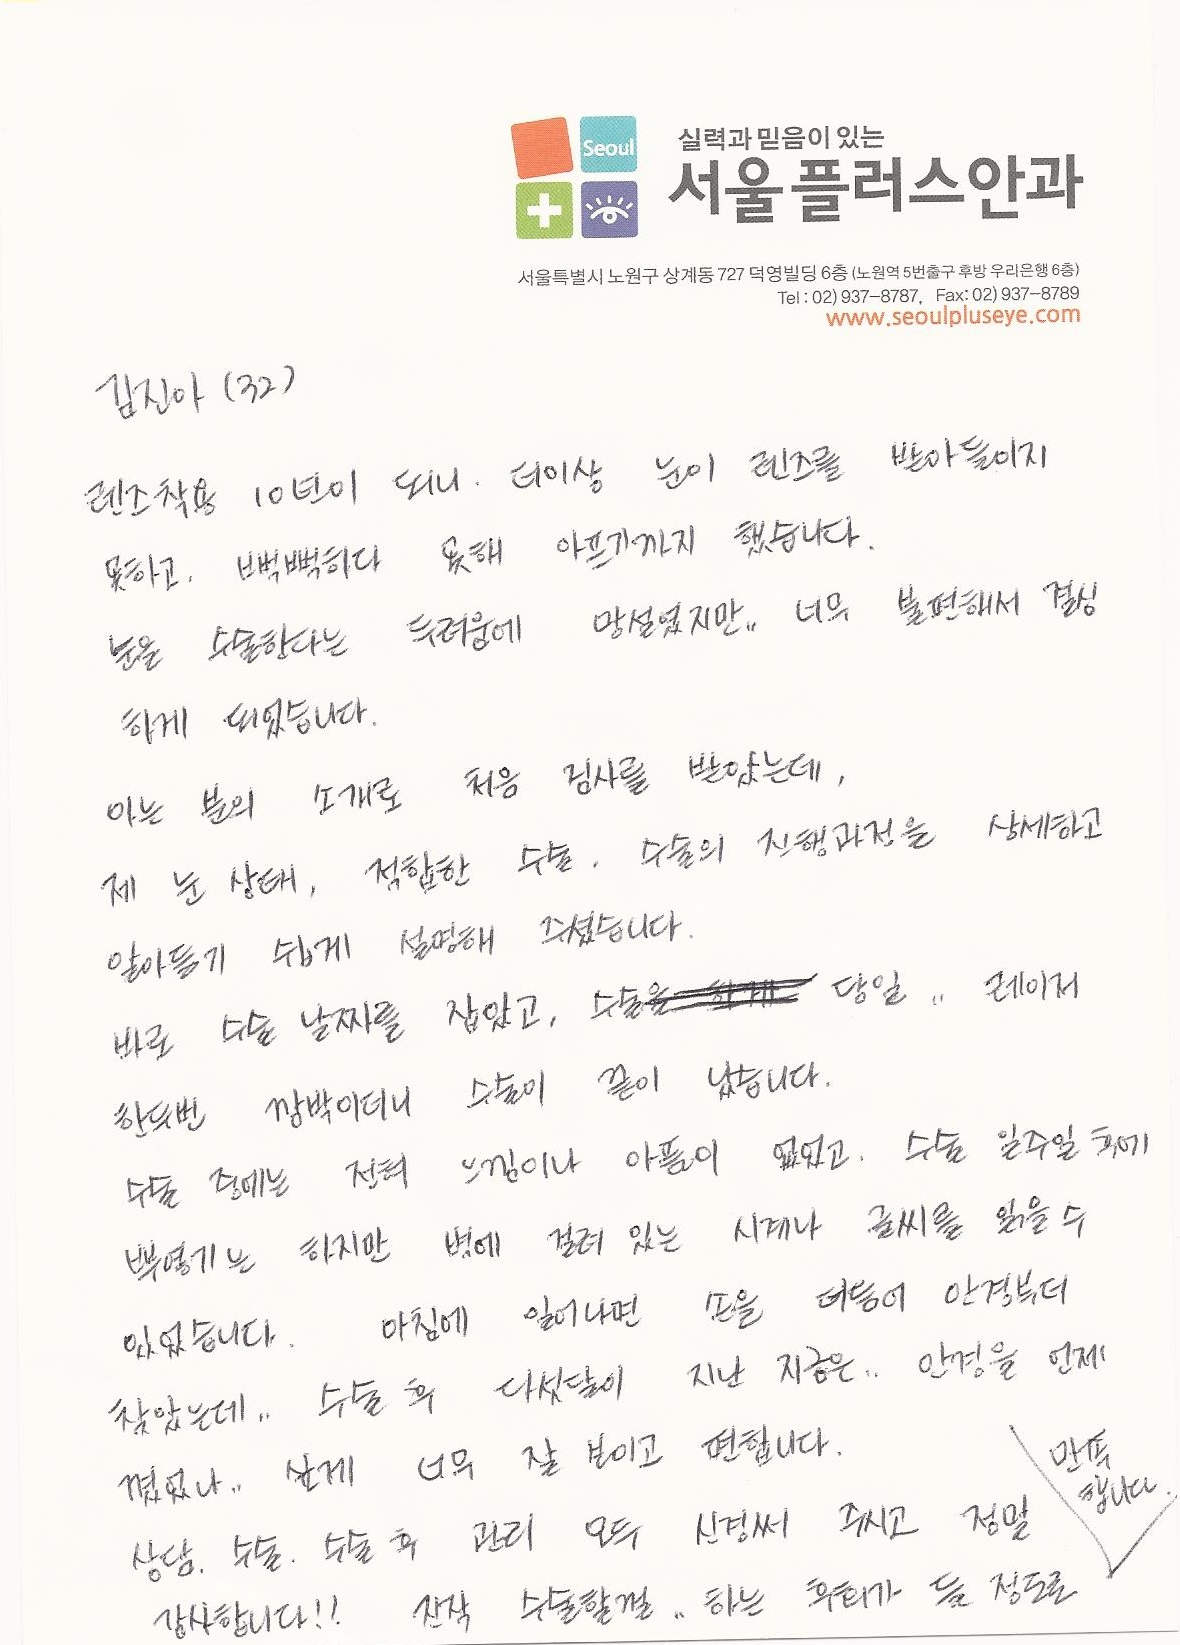 Seoul
실력과 믿음이 있는
서울플러스안과
서울특별시 노원구 상계동 727 덕영빌딩 6층 (노원역 5번출구 후방 우리은행 6층)
Tel : 02) 937-8787,  Fax: 02) 937-8789
www.seoulpluseye.com
김진아 (32)
렌즈착용 10년이 되니. 더이상 눈이 렌즈를 받아들이지
못하고. 뻑뻑하다 못해 아프기까지 했습니다.
눈을 수술한다는 두려움에 망설였지만.. 너무 불편해서 결심
하게 되었습니다.
아는 분의 소개로 처음 검사를 받았는데,
제 눈 상태, 적합한 수술. 수술의 진행과정을 상세하고
알아듣기 쉽게 설명해 주셨습니다.
바로 수술 날짜를 잡았고, 수술을 하게 당일 .. 레이저
한두번 깜박이더니 수술이 끝이 났습니다.
수술 중에는 전혀 느낌이나 아픔이 없었고. 수술 일주일 후에
뿌옇기는 하지만 벽에 걸려 있는 시계나 글씨를 읽을 수
있었습니다. 아침에 일어나면 손을 더듬어 안경부터
찾았는데.. 수술 후 다섯달이 지난 지금은.. 안경을 언제
꼈었나.. 싶게 너무 잘 보이고 편합니다.
만족
합니다.
상담. 수술. 수술 후 관리 모두 신경써 주시고 정말
감사합니다!! 진작 수술할껄.. 하는 후회가 들 정도로